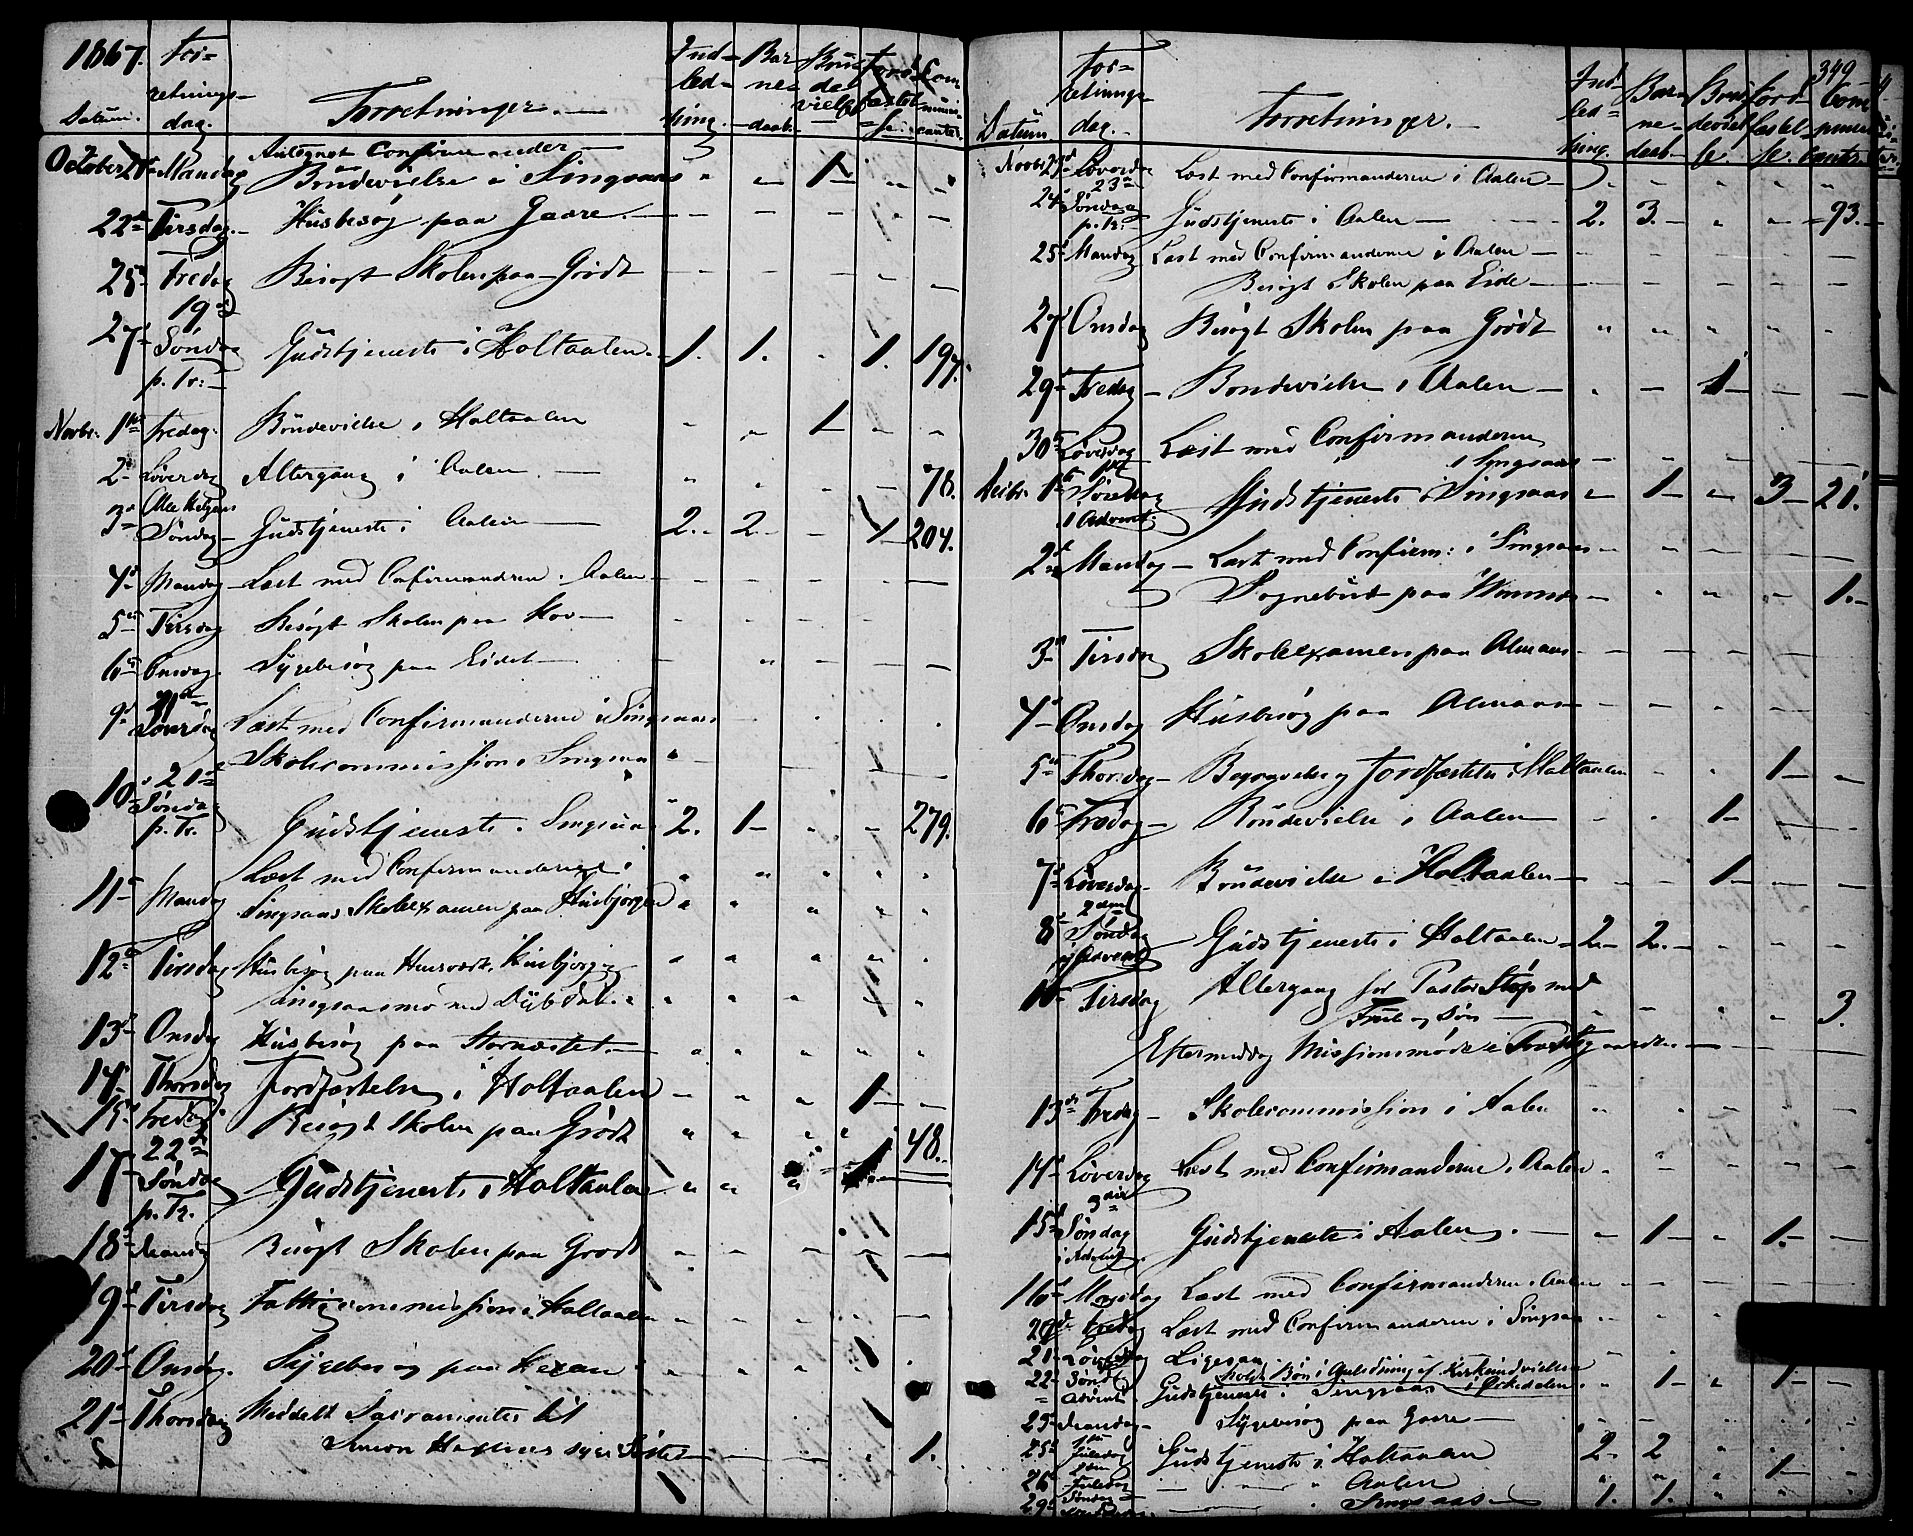 1867. For- Ind- Bar- Bru- Jord- Com
retnings- led- ne- de fæstel muni-
Datum. dag. Forretninger. ning. daab. vielse se. canter.
Antegnet Confirmander
October 21 Mandag Brudevielse i Singsaas " — 1 — " "
22 Tirsdag. Husbesøg paa Gaare. —
25 Fredag Besøgt Skolen paa Grødt
19
27 Søndag Gudstjeneste i Holtaalen. 1. 1. 1. 197.
p. Tr:
Novbr. 1 Fredag. Brudevielse i Holtaalen " " 1 — "
2 Løverdag Altergang i Aalen — 78.
Alle Helgens
3 Søndag Gudstjeneste i Aalen 2. 2. 1 204.
4 Mandag Læst med Confirmanderne i Aalen
5 Tirsdag Besøgt Skolen paa Hov
6 Onsdag. Sygebesøg paa Eidet
9 Løverdag Læst med Confirmanderne i Singsaas
Skolecommission i Singsaas
10 21
Søndag
p. Tr. Gudstjeneste i Singsaas 2. 1 279.
Læst med Confirmanderne i
11 Mandag Singsaas Skoleexamen paa
12 Tirsdag Husbesøg paa
Singsaasmo med
13 Onsdag Husbesøg paa
14 Thorsdag Jordfæstelse i Holtaalen 1
15 Fredag Besøgt Skolen paa Grødt
22 48.
17 Søndag Gudstjeneste i Holtaalen
p. Tr.
18 Mandag Besøgt Skolen paa Grødt
19 Tirsdag Fattigcommission i Holtaalen
20 Onsdag. Sygebesøg paa
21 Thorsdag Meddelt Sacramentet til
Simon syge 1.
349
For- Ind- Bar- Brud Jord- Com
retnings led- ne- devielse fæstel- muni
Datum dag. Forretninger. ning. daab se se canter
Novbr. 23 Løverdag Læst med Confirmanderne i Aalen
23
24 Søndag Gudstjeneste i Aalen 2. 3. 93.
p. Tr.
25 Mandag Læst med Confirmanderne i Aalen
Besøgt Skolen paa Eide
27 Onsdag Besøgt Skolen paa Grødt
29 Fredag Brudevielse i Aalen 1
30 Løverdag Læst med Confirmanderne
i Singsaas
Decbr. 1 Søndag Gudstjeneste i Singsaas 1 3 21.
i Advent.
2 Mandag Læst med Confirm: i Singsaas
Sognebud paa 1.
3 Tirsdag Skoleexamen paa Almaas
4 Onsdag Husbesøg paa Almaas
5 Thorsdag Begravelse og Jordfæstelse i Holtaalen 1
6 Fredag Brudevielse i Aalen 1
7 Løverdag Brudevielse i Holtaalen 1
2den
8 Søndag Gudstjeneste i Holtaalen 2. 2.
i Advent
10 Tirsdag Altergang for Pastor Støp med
Frue og Søn 3.
Eftermiddag Missionsmøde i Præstegaarden
13 Fredag Skolecommission i Aalen
14 Løverdag Læst med Confirmanderne i Aalen
3die
15 Søndag Gudstjeneste i Aalen. 1 1.
i Advent
16 Mandag Læst med Confirmanderne i Aalen
20 Fredag Læst med Confirmanderne i Singsaas
21 Løverdag Ligesaa
Holdt Bøn i Anledning af Kirkeindvielsen
22 Sønd Gudstjeneste i Singsaas i Ørkedalen. 1 1
Advent
23 Mandag Sygebesøg paa Gaare
1ste
25 Juledag Gudstjeneste i Holtaalen 2. 2
2den
26 Juledag — " — " Aalen 1
29 Søndag — " Singsaas 1. 1.